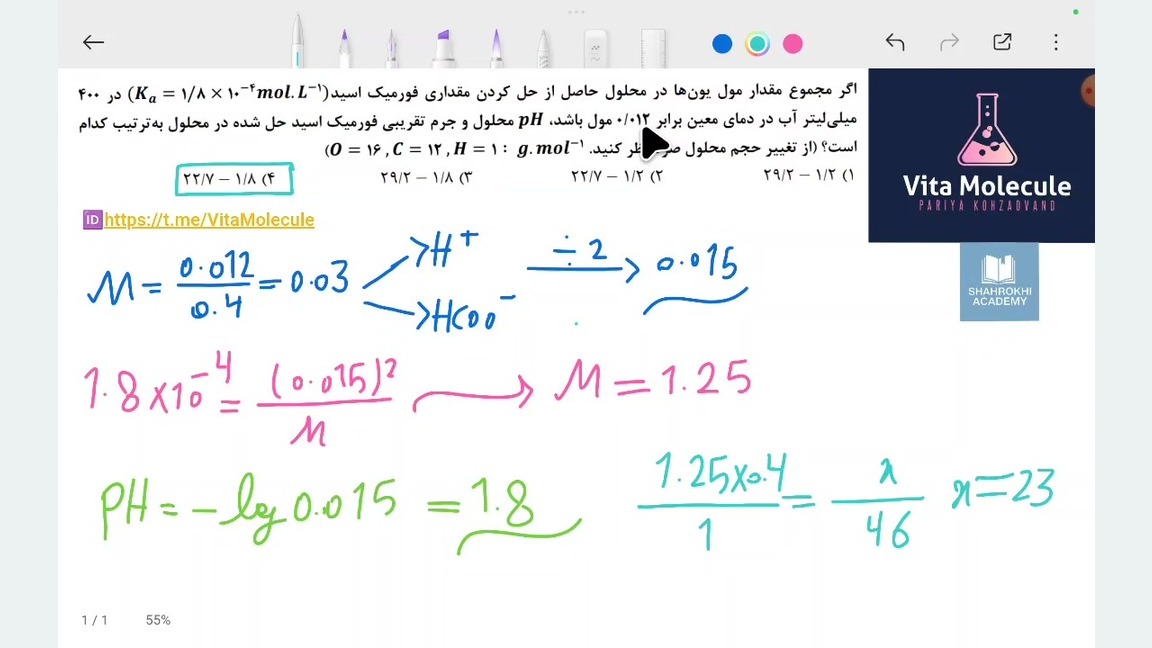 اگر مجموع مقدار مول یون‌ها در محلول حاصل از حل کردن مقداری فورمیک اسید (Kₐ = ۱/۸ × ۱۰⁻⁴ mol.L⁻¹) در ۴۰۰
میلی‌لیتر آب در دمای معین برابر ۰/۰۱۲ مول باشد، pH محلول و جرم تقریبی فورمیک اسید حل شده در محلول به‌ترتیب کدام
است؟ (از تغییر حجم محلول نظر کنید. O = ۱۶ , C = ۱۲ , H = ۱ : g.mol⁻¹)
۱) ۱/۲ – ۲۹/۲
۲) ۱/۲ – ۲۲/۷
۳) ۱/۸ – ۲۹/۲
۴) ۱/۸ – ۲۲/۷
Vita Molecule
PARIYA KOHZADVAND
ID https://t.me/VitaMolecule
SHAHROKHI
ACADEMY
M = 0.012 / 0.4 = 0.03 → H⁺ → HCOO⁻ ÷ 2 → 0.015
1.8 × 10⁻⁴ = (0.015)² / M → M = 1.25
PH = – log 0.015 = 1.8
1.25 × 0.4 / 1 = x / 46 x = 23
1 / 1 55%